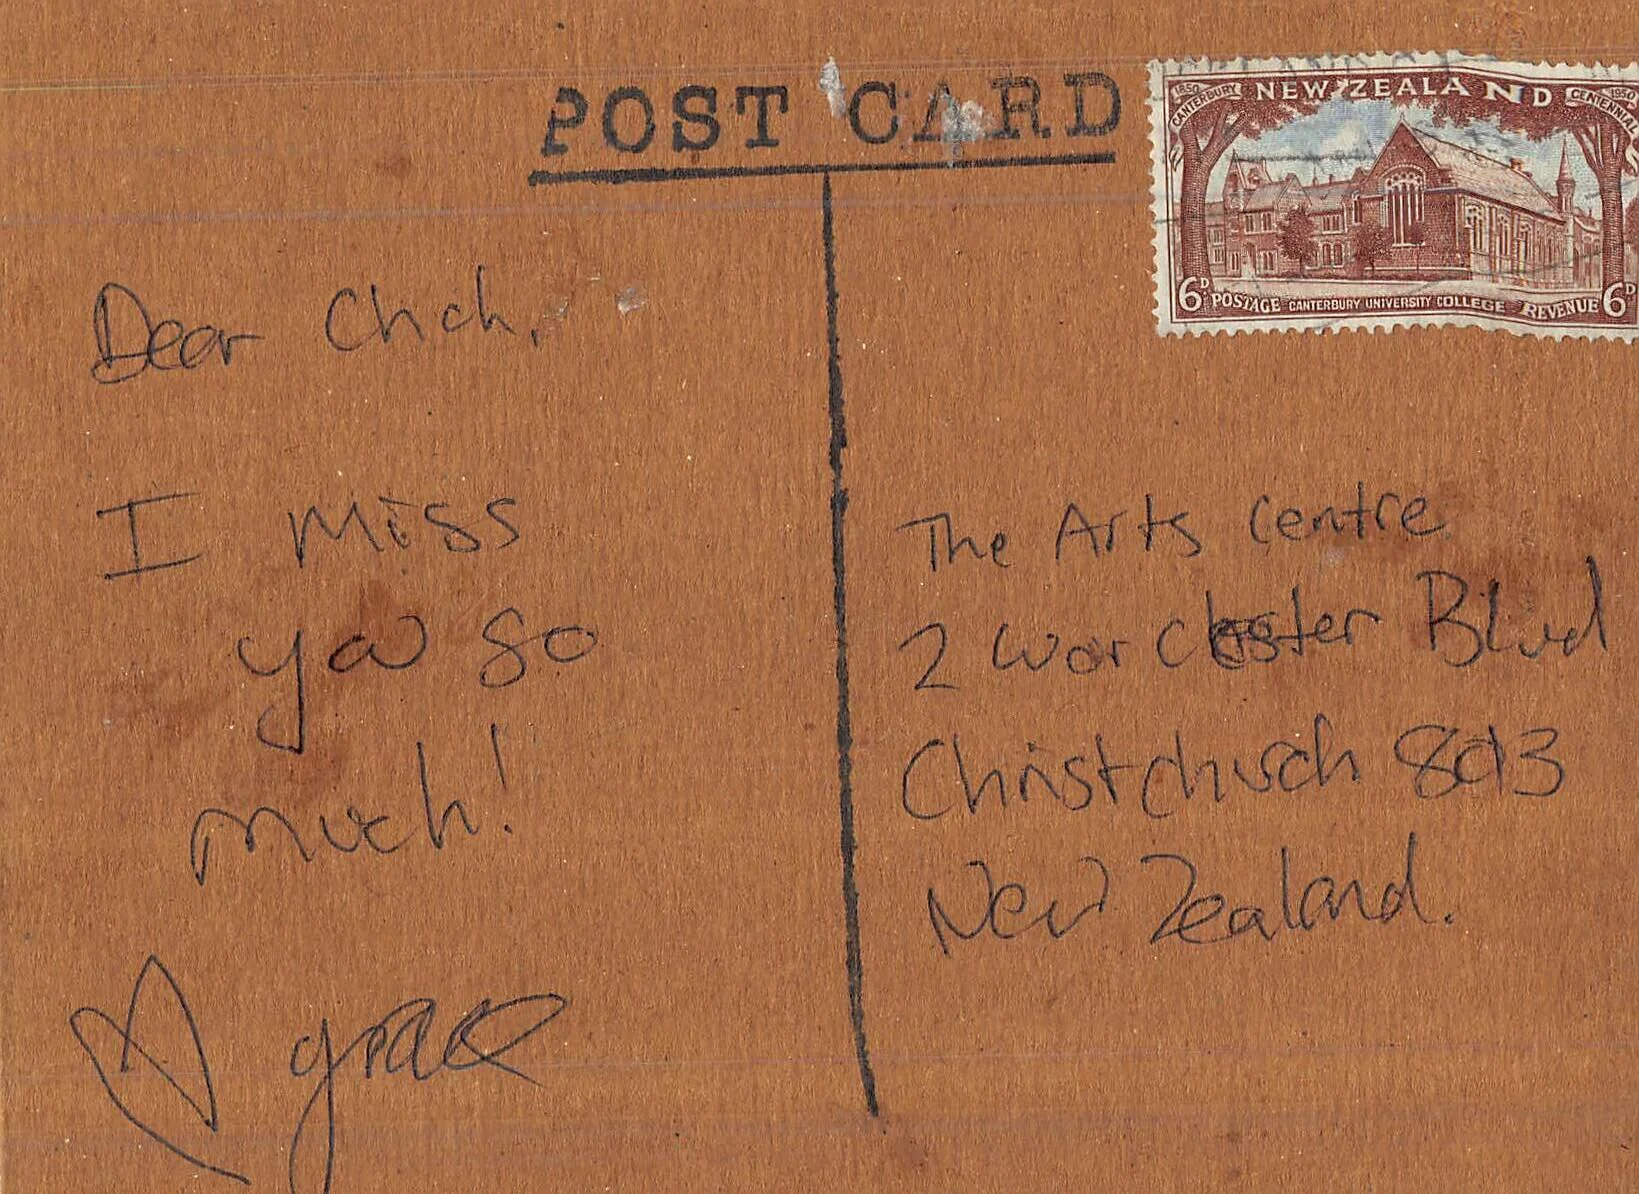 POST CARD
1850
CANTERBURY
NEW ZEALAND
1950
CENTENNIAL
6D POSTAGE CANTERBURY UNIVERSITY COLLEGE REVENUE 6D
Dear Chch,
I miss
ya so
much!
grace
The Arts Centre
2 Worcester Blvd
Christchurch 8013
New Zealand.